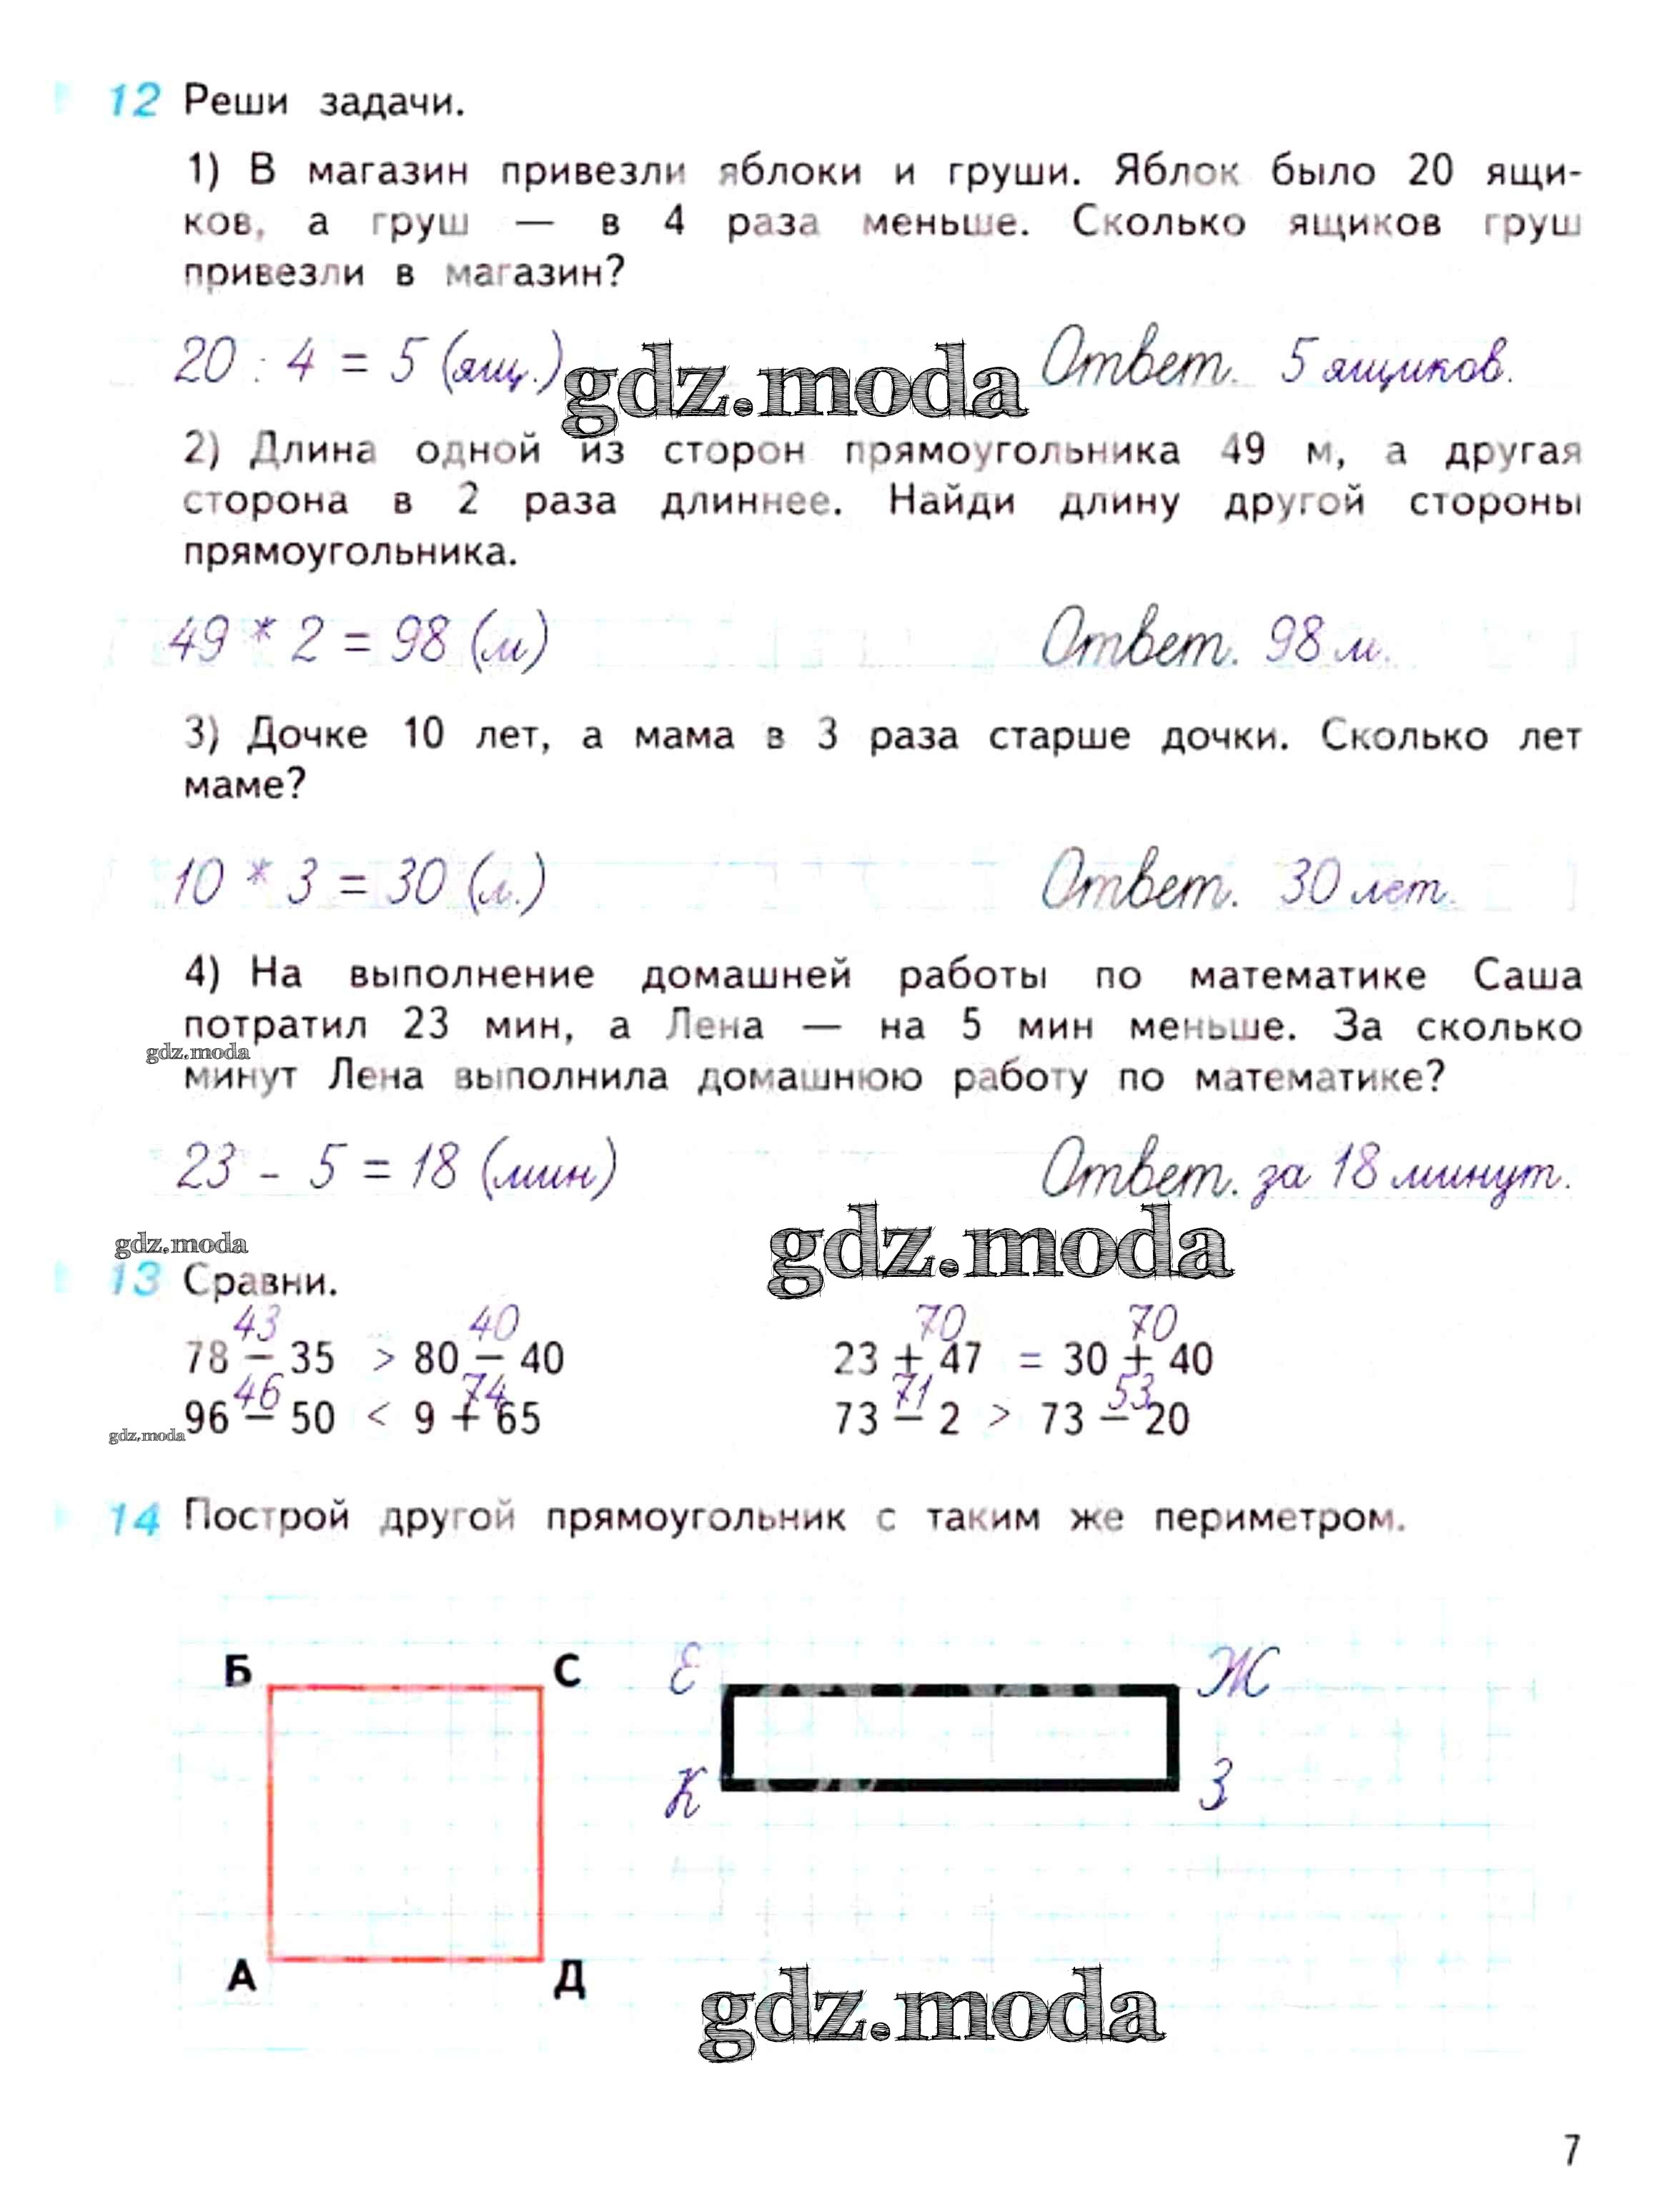 12 Реши задачи.
1) В магазин привезли яблоки и груши. Яблок было 20 ящи-
ков, а груш — в 4 раза меньше. Сколько ящиков груш
привезли в магазин?
20 : 4 = 5 (ящ.) Ответ. 5 ящиков.
gdz.moda
2) Длина одной из сторон прямоугольника 49 м, а другая
сторона в 2 раза длиннее. Найди длину другой стороны
прямоугольника.
49 * 2 = 98 (м) Ответ. 98 м.
3) Дочке 10 лет, а мама в 3 раза старше дочки. Сколько лет
маме?
10 * 3 = 30 (л.) Ответ. 30 лет.
4) На выполнение домашней работы по математике Саша
потратил 23 мин, а Лена — на 5 мин меньше. За сколько
gdz.moda
минут Лена выполнила домашнюю работу по математике?
23 - 5 = 18 (мин) Ответ. за 18 минут.
gdz.moda
gdz.moda
13 Сравни.
43 40 70 70
78 − 35 > 80 − 40 23 + 47 = 30 + 40
46 74 71 53
96 − 50 < 9 + 65 73 − 2 > 73 − 20
gdz.moda
14 Построй другой прямоугольник с таким же периметром.
Б С Е Ж
К З
А Д
gdz.moda
7